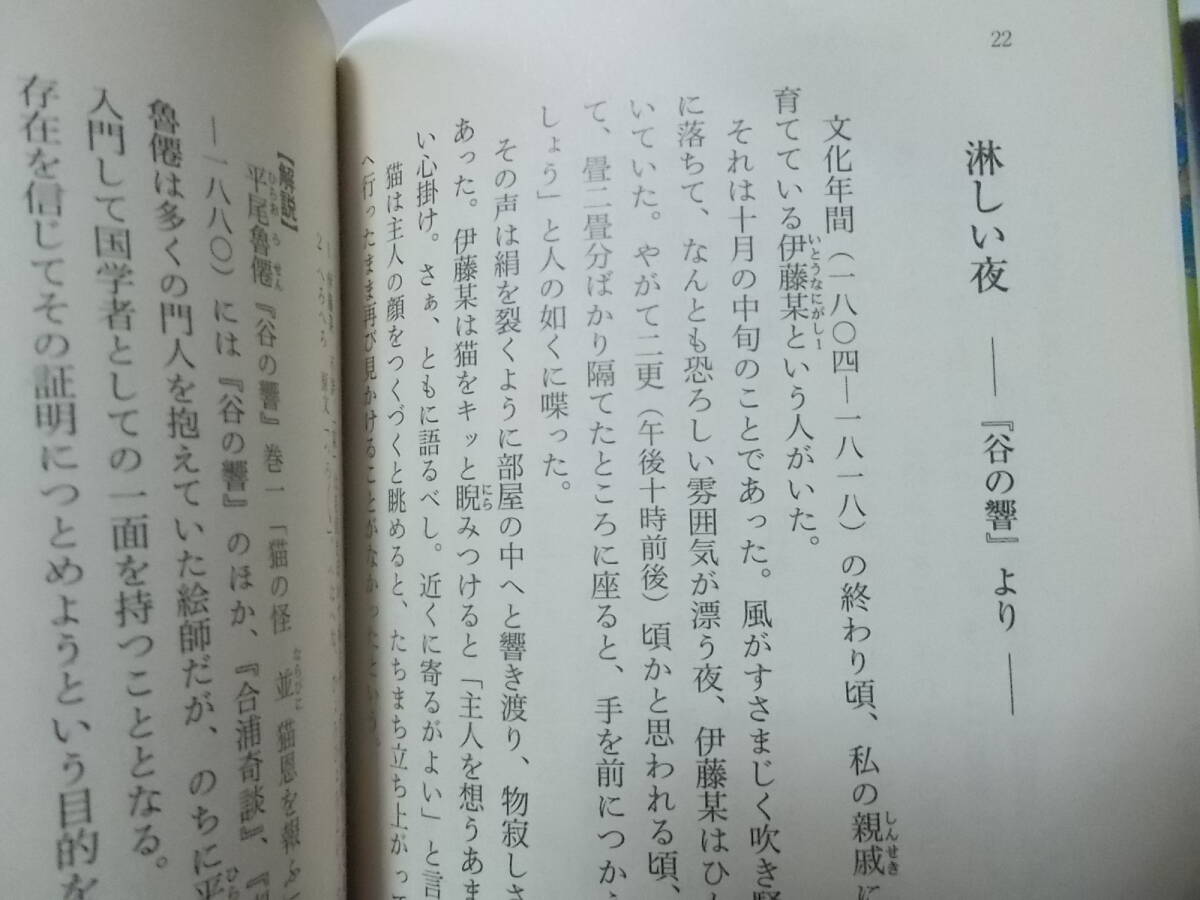 22
淋しい夜 ――『谷の響』より――
文化年間(一八〇四―一八一八)の終わり頃、私の親戚に
しんせき
育てている伊藤某という人がいた。
いとうなにがし1
それは十月の中旬のことであった。風がすさまじく吹き
に落ちて、なんとも恐ろしい雰囲気が漂う夜、伊藤某はひ
いていた。やがて二更(午後十時前後)頃かと思われる頃、
て、畳二畳分ばかり隔てたところに座ると、手を前につか
しょう」と人の如くに喋った。
その声は絹を裂くように部屋の中へと響き渡り、物寂しさ
あった。伊藤某は猫をキッと睨みつけると「主人を想うあま
にら
い心掛け。さぁ、ともに語るべし。近くに寄るがよい」と言
猫は主人の顔をつくづくと眺めると、たちまち立ち上がって
へ行ったまま再び見かけることがなかったという。
2 へろへら
【解説】
平尾魯僊『谷の響』巻一「猫の怪 並 猫恩を報ふ
ひらお ろ せん
ならびに
―一八八〇)には『谷の響』のほか、『合浦奇談』、『
魯僊は多くの門人を抱えていた絵師だが、のちに平
ひら
入門して国学者としての一面を持つこととなる。
存在を信じてその証明につとめようという目的を